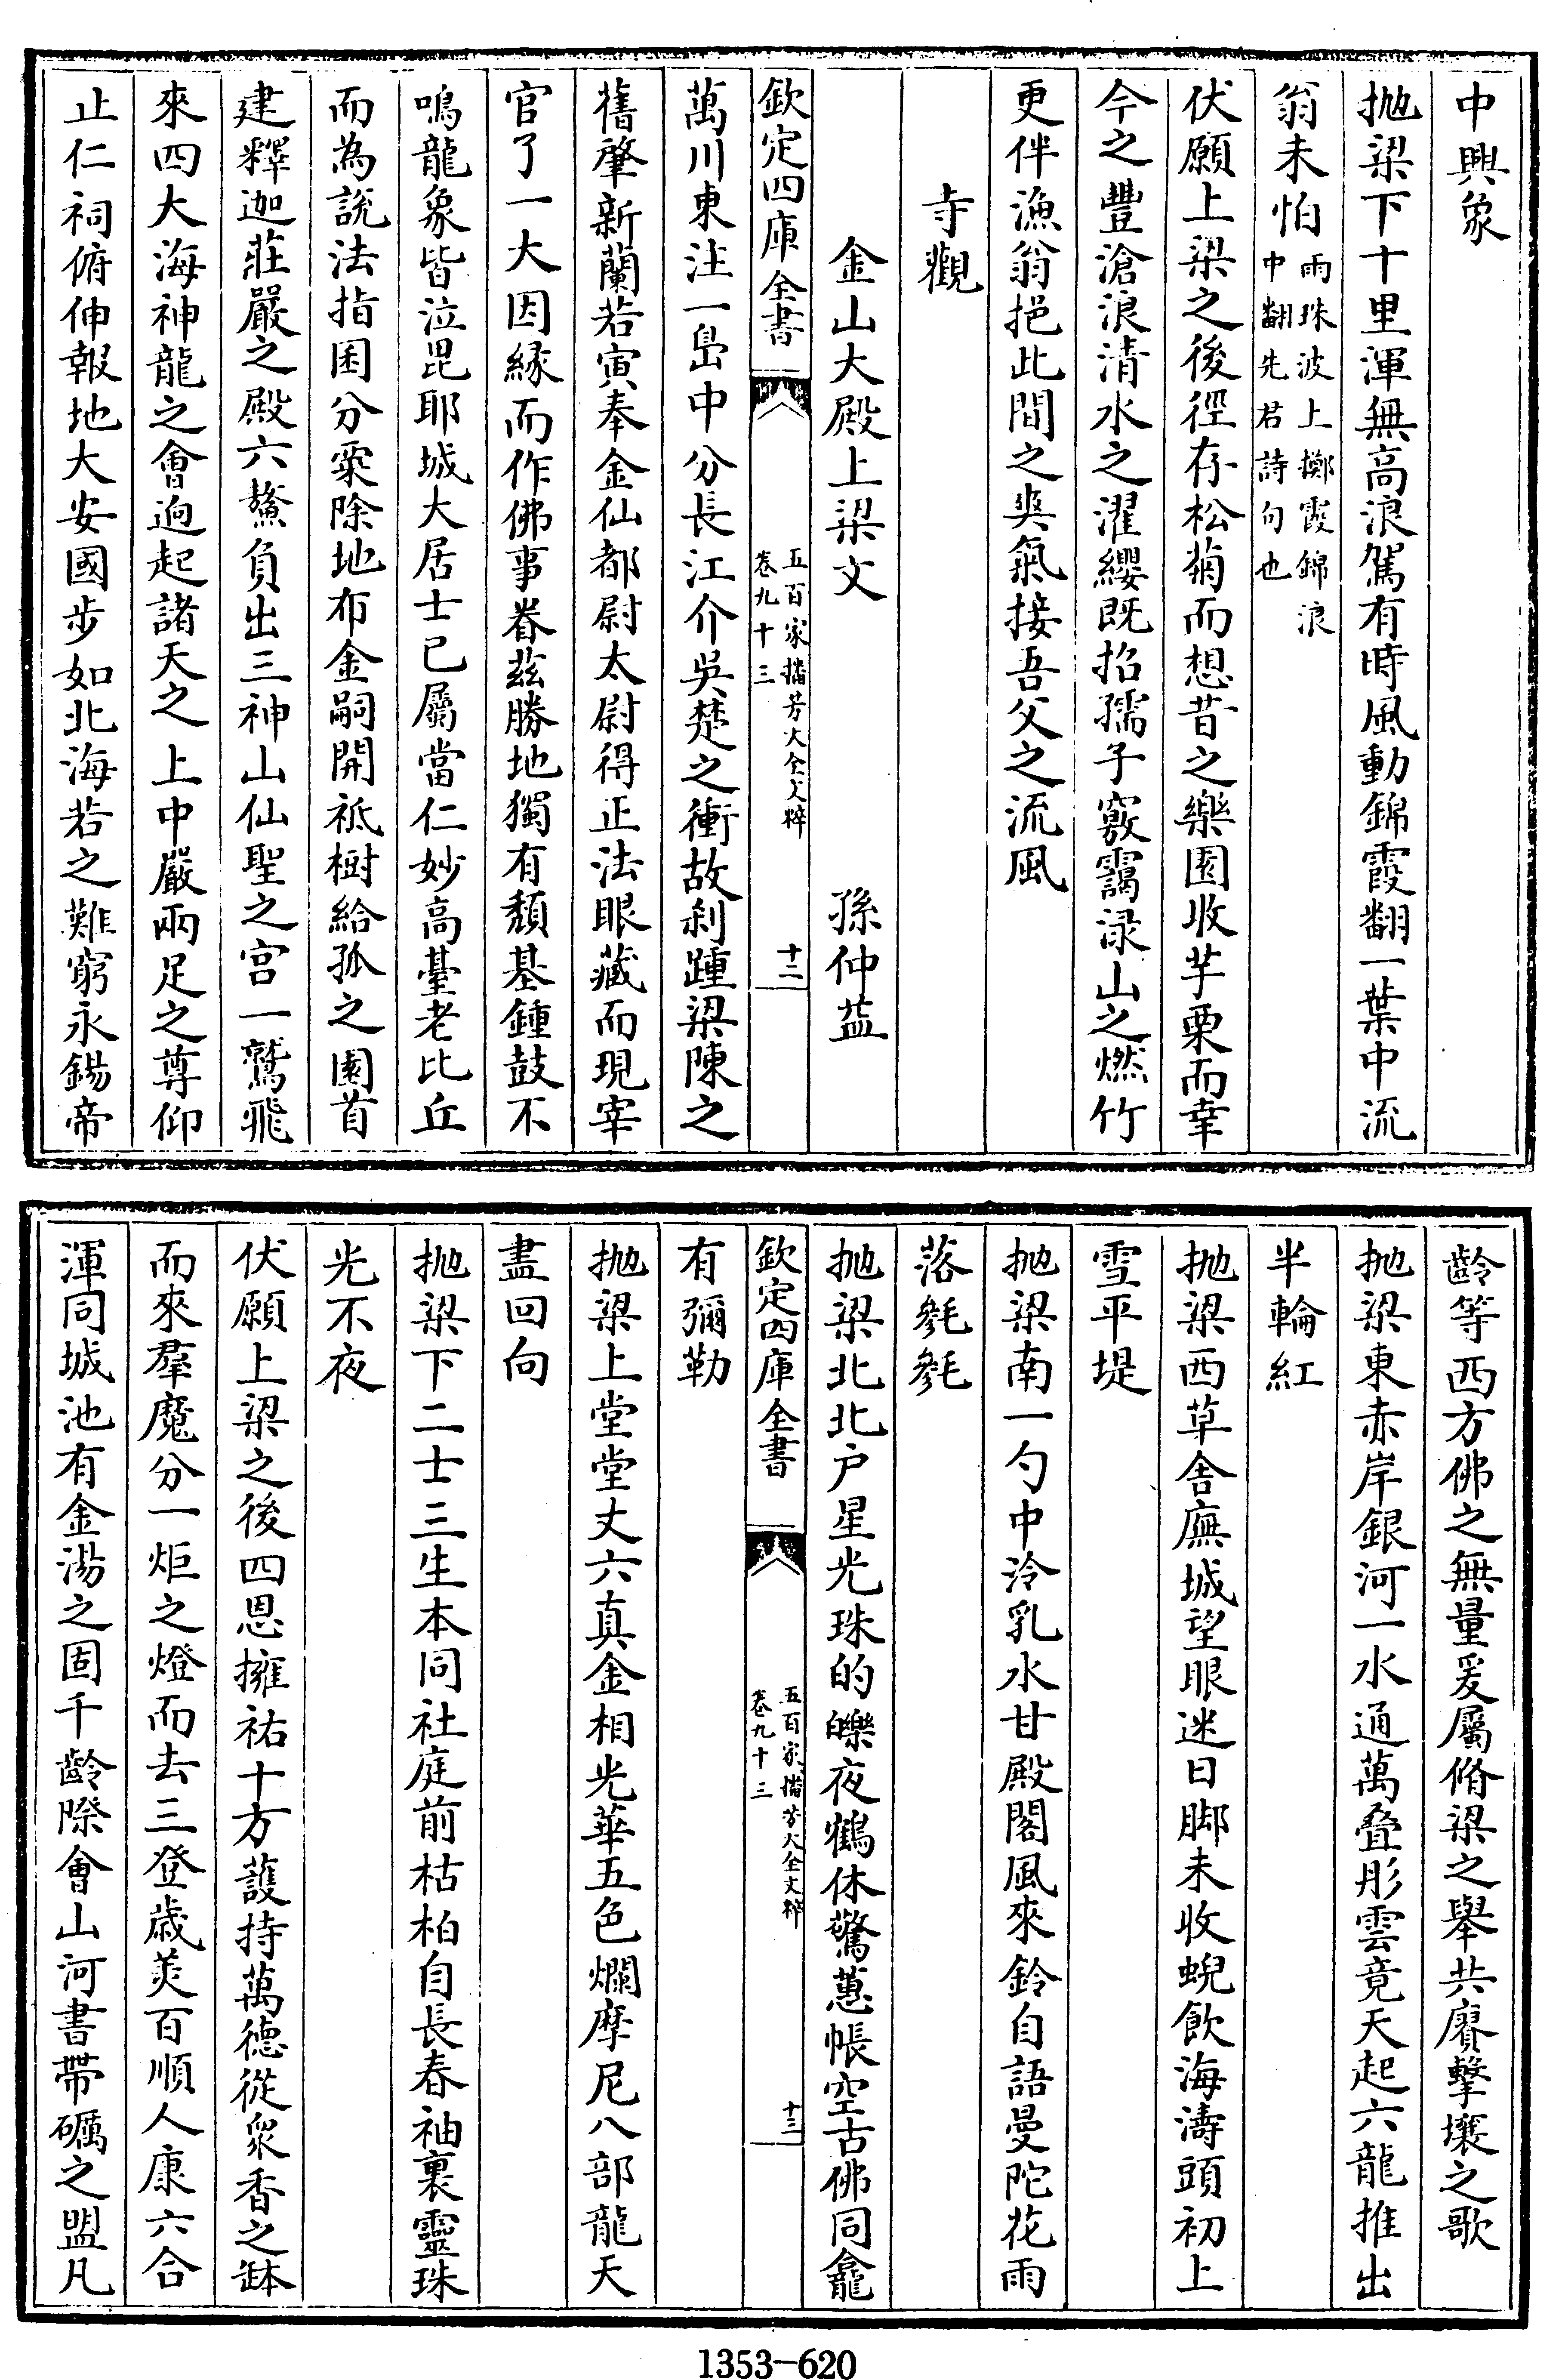 中興象
抛梁下十里渾無高浪駕有時風動錦霞翻一葉中流
翁未怕雨珠波上擲霞錦浪中翻先君詩句也
伏願上梁之後徑存松菊而想昔之樂園收芋栗而幸
今之豐滄浪清水之濯纓既招孺子竅靄渌山之燃竹
更伴漁翁挹此間之爽氣接吾父之流風
寺觀
金山大殿上梁文 孫仲益
欽定四庫全書 五百家播芳大全文粹 卷九十三 十二
萬川東注一島中分長江介吳楚之衝故刹踵梁陳之
舊肇新蘭若寅奉金仙都尉太尉得正法眼藏而現宰
官了一大因緣而作佛事眷茲勝地獨有頹基鍾鼓不
鳴龍象皆泣毘耶城大居士已屬當仁妙高臺老比丘
而為說法指囷分粟除地布金嗣開祗樹給孤之園首
建釋迦莊嚴之殿六鰲負出三神山仙聖之宫一鷲飛
來四大海神龍之會逈起諸天之上中嚴兩足之尊仰
止仁祠俯伸報地大安國步如北海若之難窮永錫帝
齡等西方佛之無量爰屬脩梁之舉共賡擊壤之歌
抛梁東赤岸銀河一水通萬叠彤雲竟天起六龍推出
半輪紅
抛梁西草舎廡城望眼迷日脚未收蜺飲海濤頭初上
雪平堤
抛梁南一勺中泠乳水甘殿閣風來鈴自語曼陀花雨
落毿毿
抛梁北北户星光珠的皪夜鶴休驚蕙帳空古佛同龕
欽定四庫全書 五百家播芳大全文粹 卷九十三 十三
有彌勒
抛梁上堂堂丈六真金相光華五色爛摩尼八部龍天
盡回向
抛梁下二士三生本同社庭前枯柏自長春袖裏靈珠
光不夜
伏願上梁之後四恩擁祐十方䕶持萬德從衆香之缽
而來羣魔分一炬之燈而去三登歲美百順人康六合
渾同城池有金湯之固千齡際會山河書帶礪之盟凡
1353—620